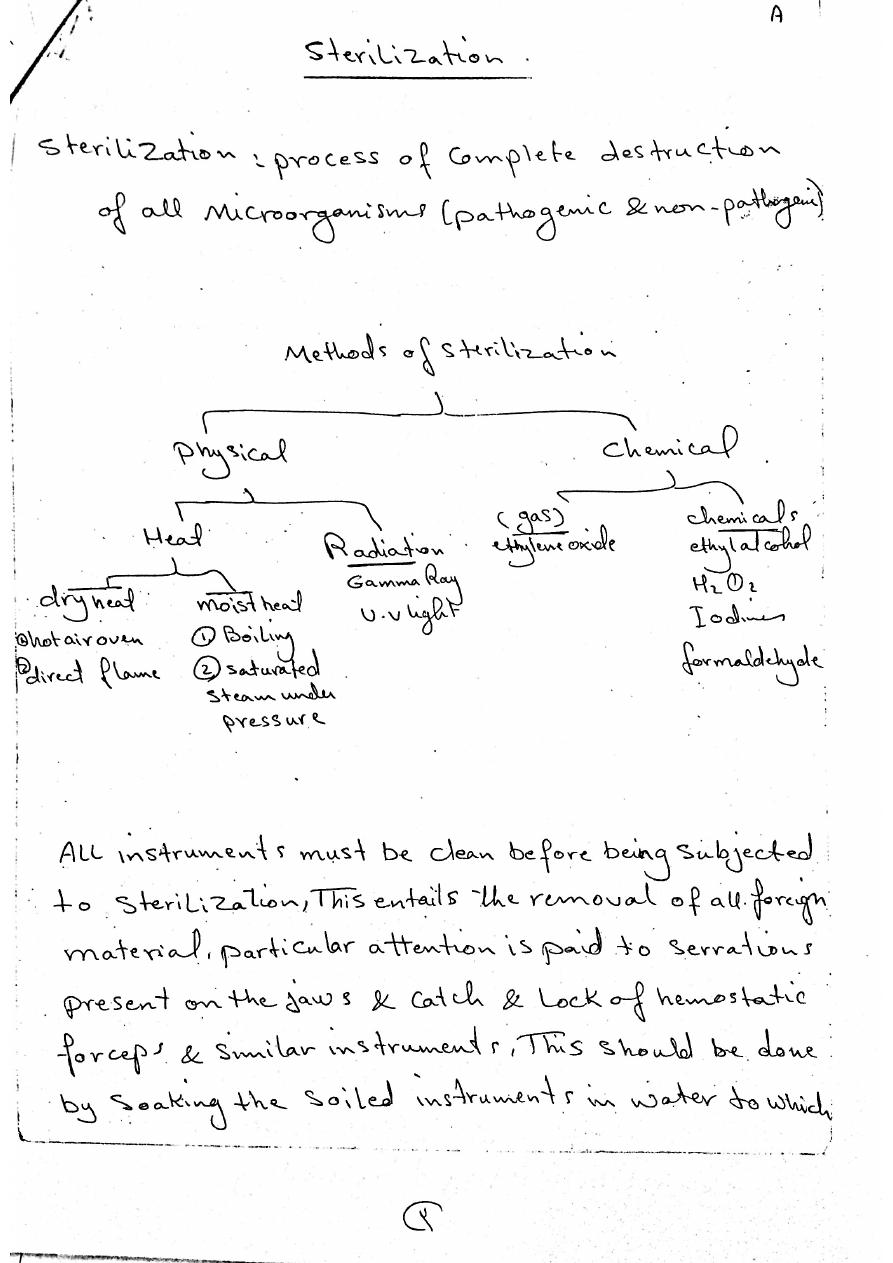 A
Sterilization.
Sterilization: process of Complete destruction
of all Microorganisms (pathogenic & non-pathogenic)
Methods of Sterilization
Physical
Chemical
Heat
Radiation
Gamma Ray
U.v light
(gas)
ethylene oxide
chemicals
ethyl alcohol
H₂O₂
Iodines
formaldehyde
dry heat
① hot air oven
② direct flame
moist heat
① Boiling
② saturated
steam under
pressure
ALL instruments must be clean before being Subjected
to Sterilization, This entails the removal of all foreign
material, particular attention is paid to serrations
present on the jaws & Catch & Lock of hemostatic
forceps & Similar instruments, This should be done
by Soaking the Soiled instruments in water to which